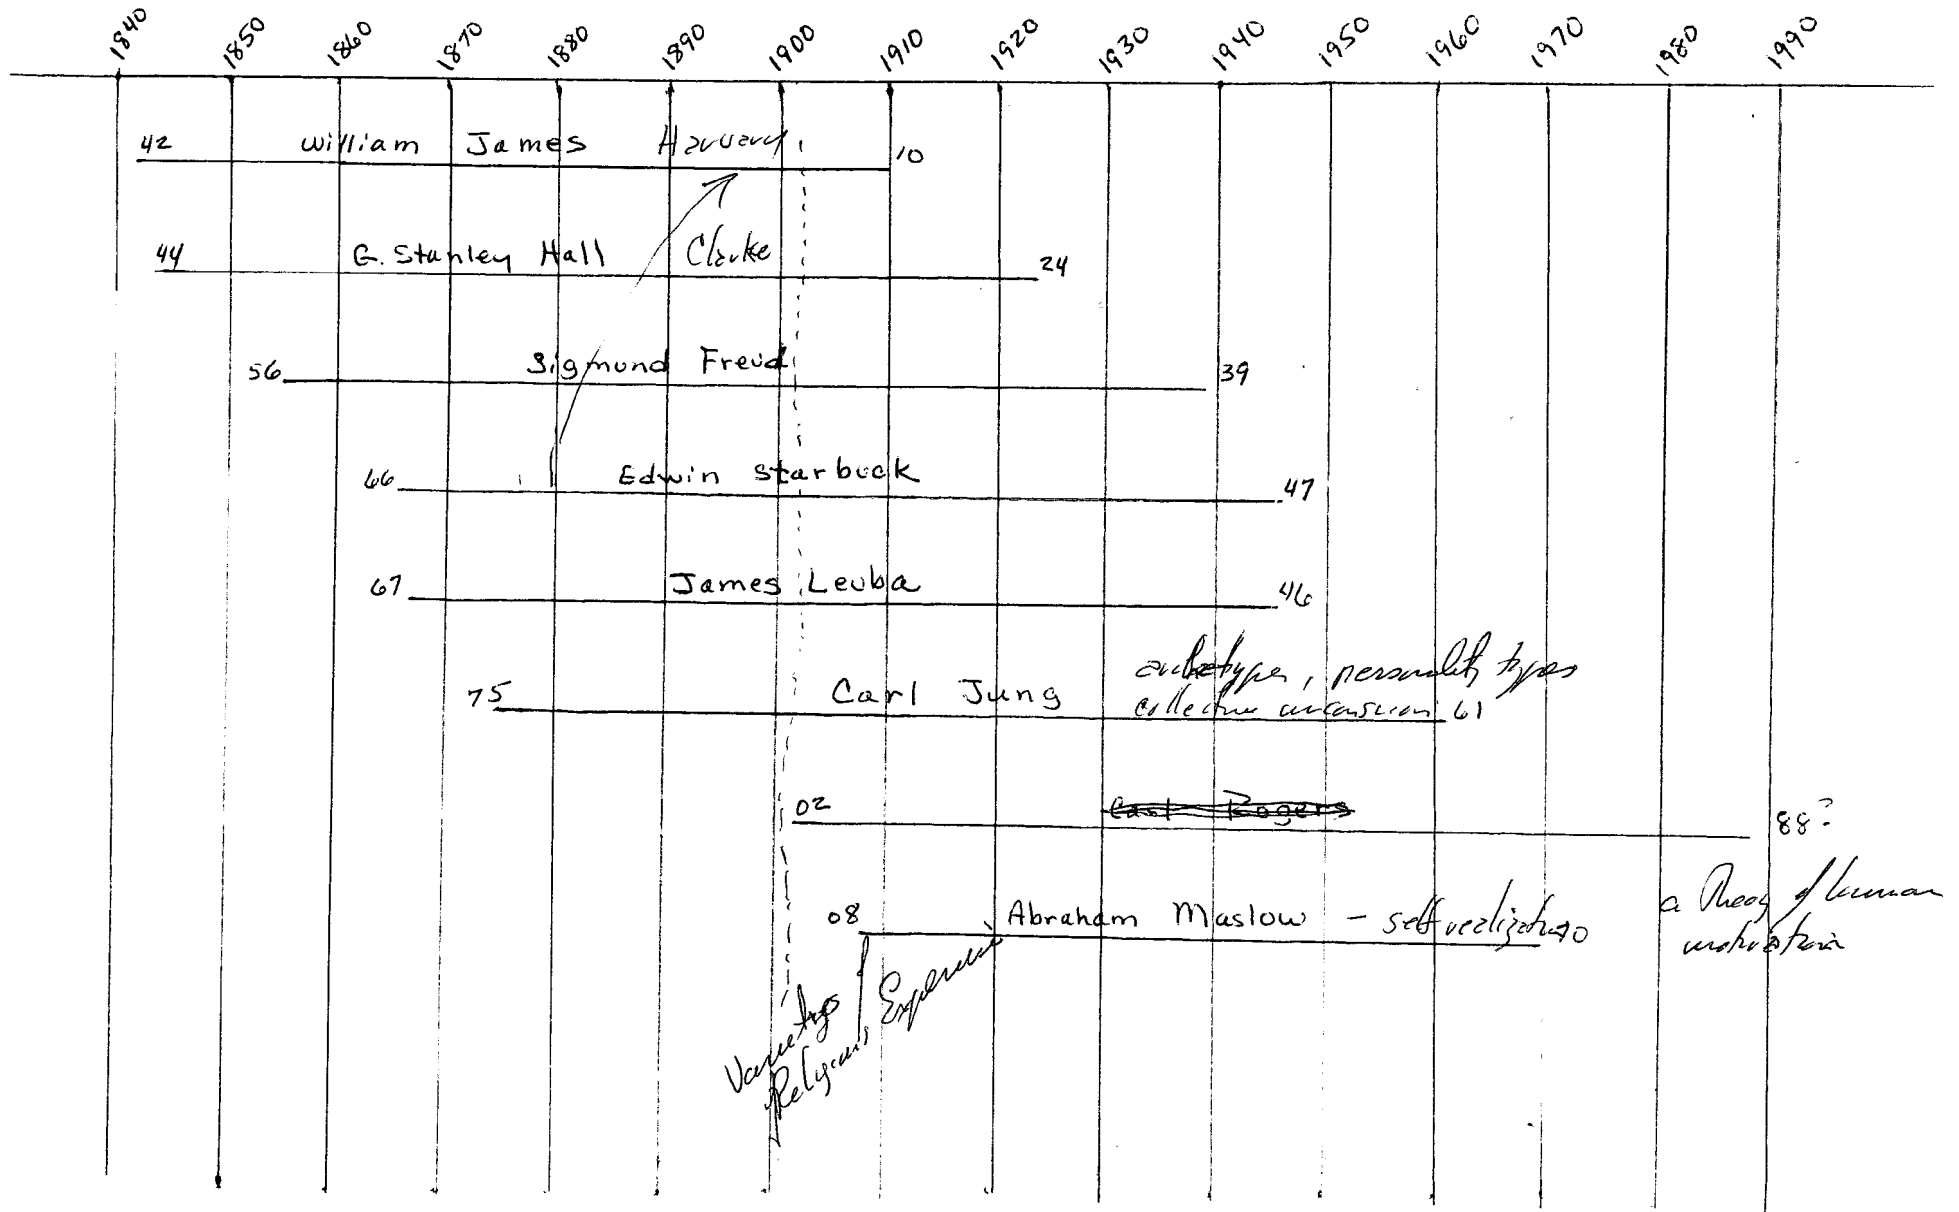 1840 1850 1860 1870 1880 1890 1900 1910 1920 1930 1940 1950 1960 1970 1980 1990
42 William James Harvard 10
44 G. Stanley Hall Clarke 24
56 Sigmund Freud 39
66 Edwin Starbuck 47
67 James Leuba 46
archetypes, personality types
75 Carl Jung collective unconscious 61
02 Carl Rogers 88?
08 Abraham Maslow - self realization 70
a Theory of human
motivation
Varieties of
Religious Experience